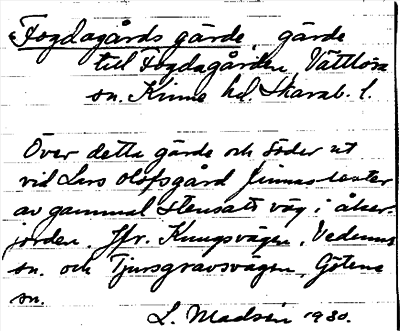 Fogdagårds gärde, gärde
till Fogdagården, Vättlösa
sn. Kinne hd. Skarab. l.
Över detta gärde och söder ut
vid Lars Olofsgård finnas rester
av gammal stensatt väg i åker-
jorden. Jfr. Kungsvägen, Vedums
sn. och Tjursgravsvägen, Götene
sn.
L. Madsén 1930.